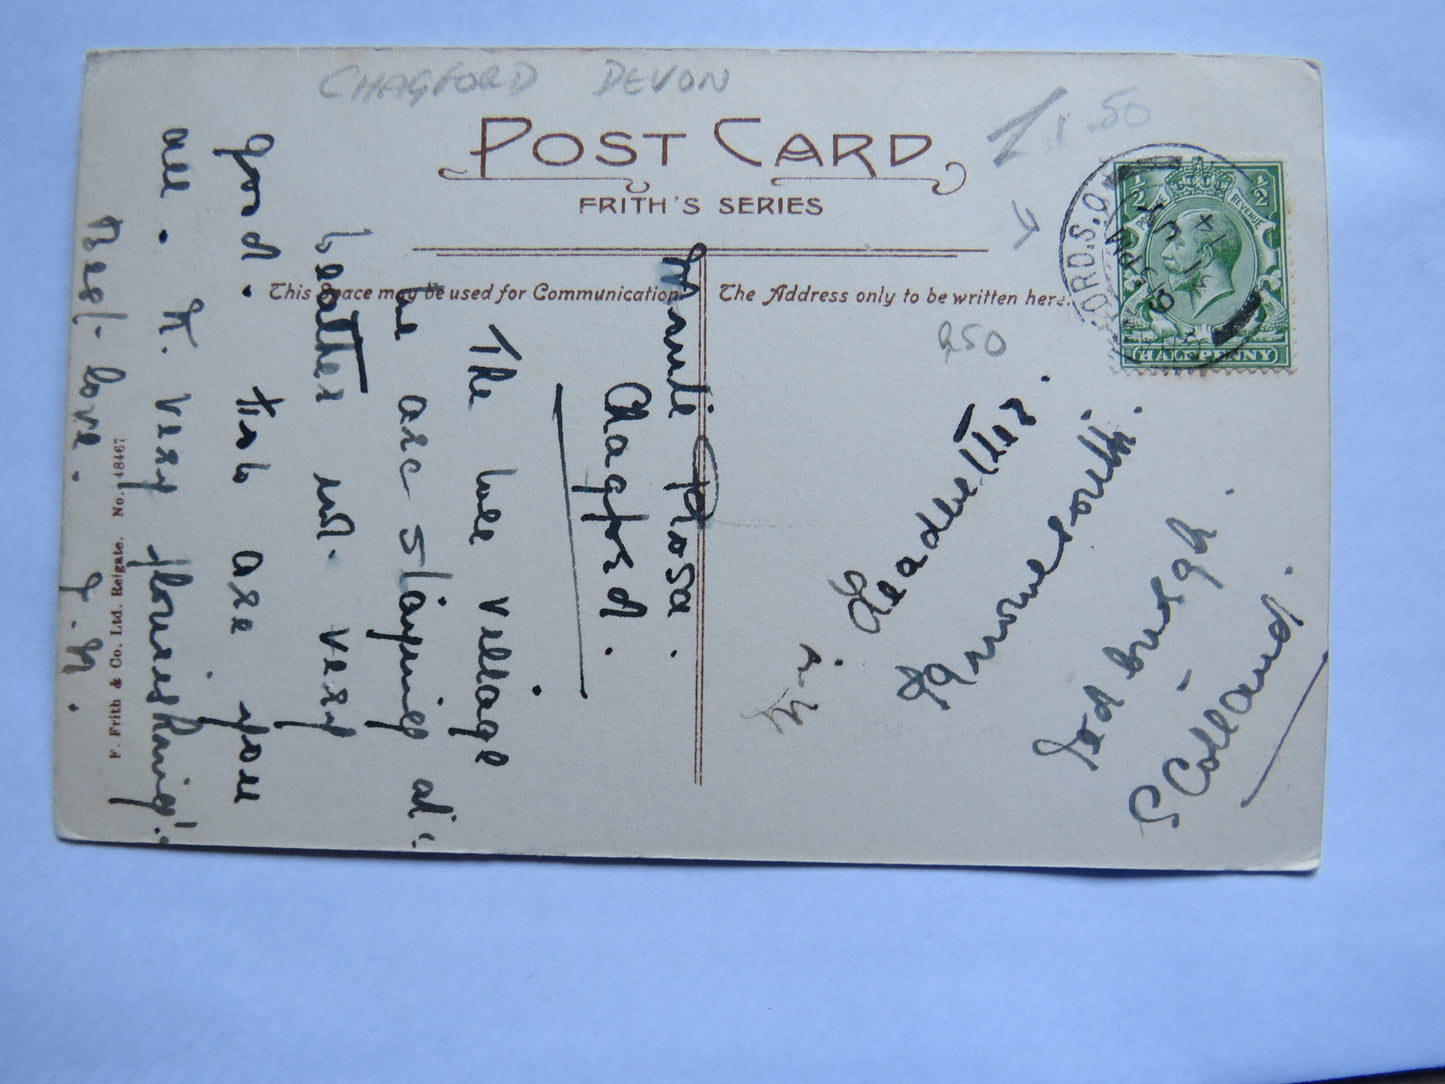 CHAGFORD DEVON
1.50
POST CARD
FRITH'S SERIES
This space may be used for Communication
The Address only to be written here.
½ ½
POSTAGE REVENUE
HALFPENNY
ORD.S.O
5 PM
14
250
Rosa.
Chagford.
The wee village
we are staying at.
Weather not very
good. Trust you are
all . K. very flourishing!
Best love.
Leadbetter.
Jedburgh.
Scotland.
F. Frith & Co. Ltd. Reigate. No. 48467